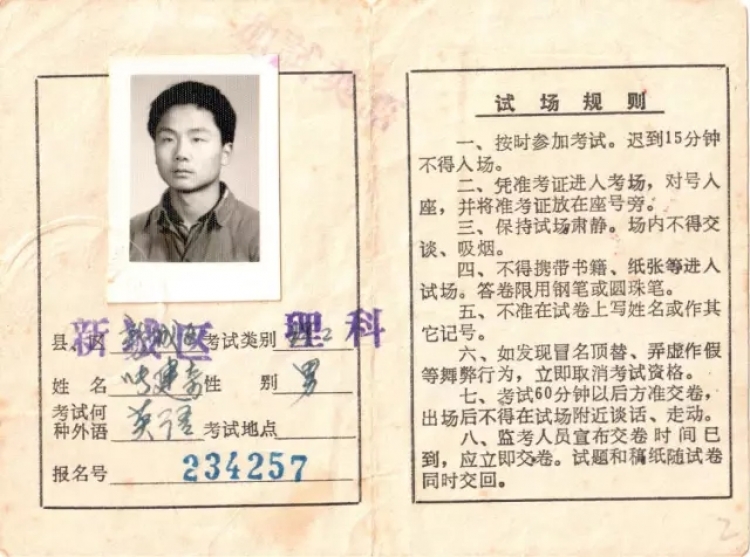 县 区 新城区 考试类别 理科
姓 名 建 性 别 男
考试何
种外语 英语 考试地点
报名号 234257
试场规则
一、按时参加考试。迟到15分钟
不得入场。
二、凭准考证进入考场，对号入
座，并将准考证放在座号旁。
三、保持试场肃静。场内不得交
谈、吸烟。
四、不得携带书籍、纸张等进入
试场。答卷限用钢笔或圆珠笔。
五、不准在试卷上写姓名或作其
它记号。
六、如发现冒名顶替、弄虚作假
等舞弊行为，立即取消考试资格。
七、考试60分钟以后方准交卷，
出场后不得在试场附近谈话、走动。
八、监考人员宣布交卷时间已
到，应立即交卷。试题和稿纸随试卷
同时交回。
2